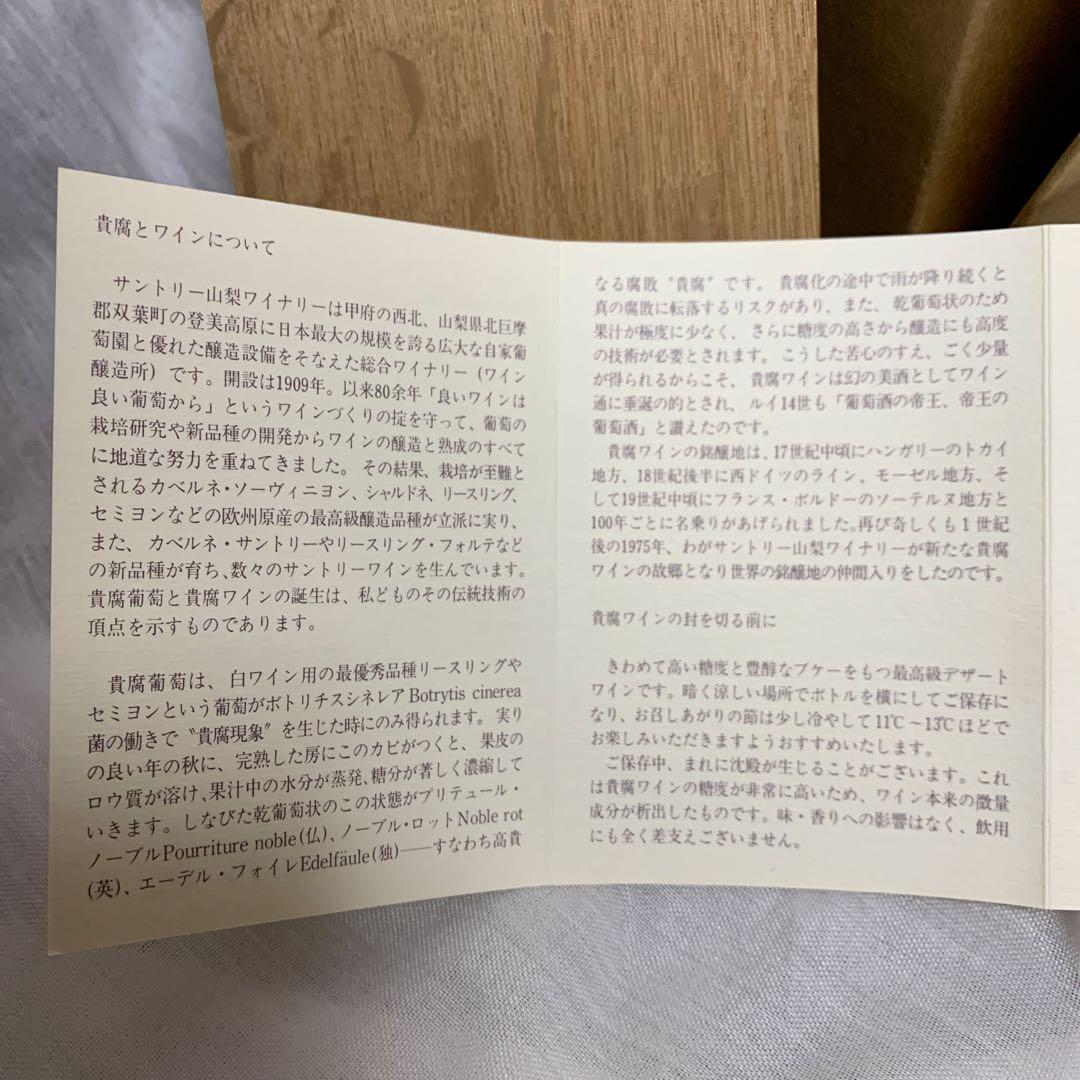 貴腐とワインについて
サントリー山梨ワイナリーは甲府の西北、山梨県北巨摩
郡双葉町の登美高原に日本最大の規模を誇る広大な自家葡
萄園と優れた醸造設備をそなえた総合ワイナリー（ワイン
醸造所）です。開設は1909年。以来80余年「良いワインは
良い葡萄から」というワインづくりの掟を守って、葡萄の
栽培研究や新品種の開発からワインの醸造と熟成のすべて
に地道な努力を重ねてきました。その結果、栽培が至難と
されるカベルネ・ソーヴィニヨン、シャルドネ、リースリング、
セミヨンなどの欧州原産の最高級醸造品種が立派に実り、
また、カベルネ・サントリーやリースリング・フォルテなど
の新品種が育ち、数々のサントリーワインを生んでいます。
貴腐葡萄と貴腐ワインの誕生は、私どものその伝統技術の
頂点を示すものであります。
貴腐葡萄は、白ワイン用の最優秀品種リースリングや
セミヨンという葡萄がボトリチスシネレアBotrytis cinerea
菌の働きで〝貴腐現象〟を生じた時にのみ得られます。実り
の良い年の秋に、完熟した房にこのカビがつくと、果皮の
ロウ質が溶け、果汁中の水分が蒸発、糖分が著しく濃縮して
いきます。しなびた乾葡萄状のこの状態がプリテュール・
ノーブルPourriture noble(仏)、ノーブル・ロットNoble rot
(英)、エーデル・フォイレEdelfäule(独)――すなわち高貴
なる腐敗〝貴腐〟です。貴腐化の途中で雨が降り続くと
真の腐敗に転落するリスクがあり、また、乾葡萄状のため
果汁が極度に少なく、さらに糖度の高さから醸造にも高度
の技術が必要とされます。こうした苦心のすえ、ごく少量
が得られるからこそ、貴腐ワインは幻の美酒としてワイン
通に垂涎の的とされ、ルイ14世も「葡萄酒の帝王、帝王の
葡萄酒」と讃えたのです。
貴腐ワインの銘醸地は、17世紀中頃にハンガリーのトカイ
地方、18世紀後半に西ドイツのライン、モーゼル地方、そ
して19世紀中頃にフランス・ボルドーのソーテルヌ地方と
100年ごとに名乗りがあげられました。再び奇しくも1世紀
後の1975年、わがサントリー山梨ワイナリーが新たな貴腐
ワインの故郷となり世界の銘醸地の仲間入りをしたのです。
貴腐ワインの封を切る前に
きわめて高い糖度と豊醇なブケーをもつ最高級デザート
ワインです。暗く涼しい場所でボトルを横にしてご保存に
なり、お召しあがりの節は少し冷やして11℃～13℃ほどで
お楽しみいただきますようおすすめいたします。
ご保存中、まれに沈殿が生じることがございます。これ
は貴腐ワインの糖度が非常に高いため、ワイン本来の微量
成分が析出したものです。味・香りへの影響はなく、飲用
にも全く差支えございません。